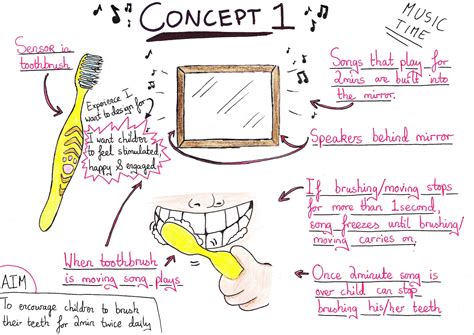 CONCEPT 1
MUSIC
TIME
Sensor in
toothbrush
Experience I
want to design for
I want children
to feel stimulated,
happy & engaged
Songs that play for
2mins are built into
the mirror.
Speakers behind mirror
If brushing/moving stops
for more than 1second,
song freezes until brushing/
moving carries on,
When toothbrush
is moving song plays
Once 2minute song is
over child can stop
brushing his/her teeth
AIM
To encourage children to brush
their teeth for 2min twice daily